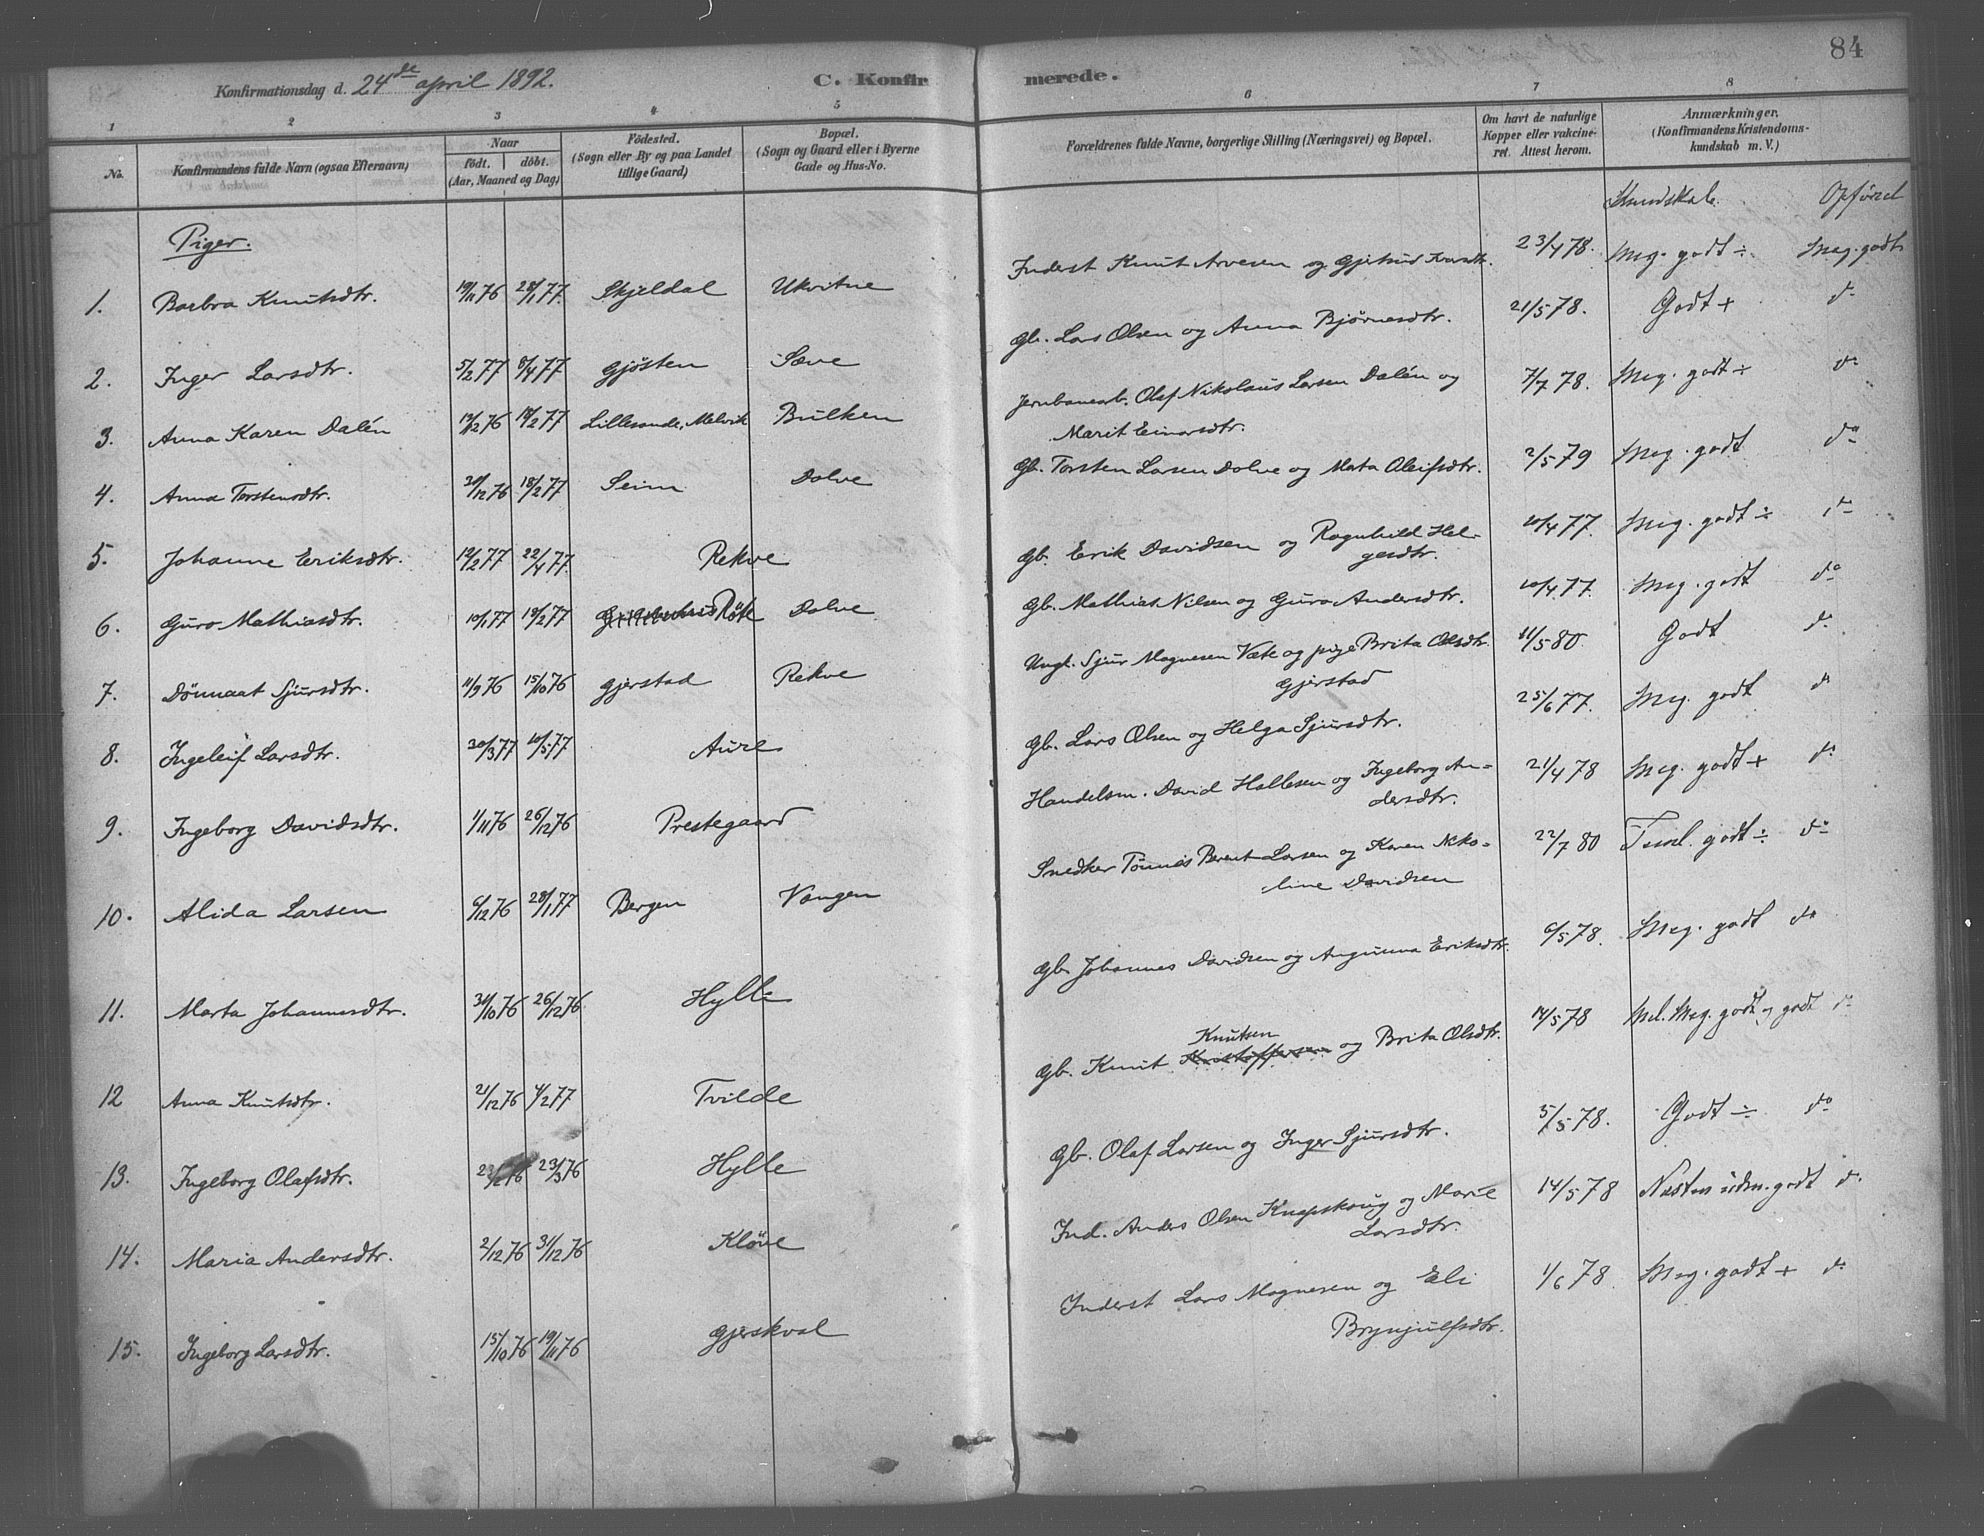 84
Konfirmationsdag d. 24de april 1892. C. Konfirmerede.
1 2 3 4 5 6 7 8
No. Konfirmandens fulde Navn (ogsaa Efternavn) Naar födt. döbt. (Aar, Maaned og Dag) Födested. (Sogn eller By og paa Landet tillige Gaard) Bopæl. (Sogn og Gaard eller i Byerne Gade og Hus-No. Forældrenes fulde Navne, borgerlige Stilling (Næringsvei) og Bopæl. Om havt de naturlige Kopper eller vakcineret. Attest herom. Anmærkninger. (Konfirmandens Kristendomskundskab m. V.)
Piger. Kundskab. Opførsel
1. Barbra Knutsdtr. 19/11 76 28/1 77. Skjeldal Ukvitne Inderst Knut Arvesen og Gjertrud 23/4 78. Meg. godt ÷ Meg. godt
2. Inger Larsdtr. 5/2 77 8/4 77 Gjøsten Sæve Gb. Lars Olsen og Anna Bjørnesdtr. 21/5 78. Godt + do
3. Anna Karen Dalén 17/12 76 18/2 77 Lillesande, Melvik Bulken Jernbanearb. Olaf Nikolaus Larsen Dalén og
Marit Einarsdtr. 7/7 78. Meg. godt ÷ do
4. Anna Torstensdtr. 20/12 76 18/2 77 Seim Dolve Gb. Torsten Larsen Dolve og Marta Oleifsdtr. 2/5 79 Meg. godt do
5. Johanne Eriksdtr. 12/2 77 22/4 77. Rekve Gb. Erik Davidsen og Ragnhild Hel-
gesdtr. 10/4 77. Meg. godt ÷ do
6. Guro Mathiasdtr. 10/1 77 18/2 77 Røte Dolve Gb. Mathias Nilsen og Guro Andersdtr. 10/4 77. Meg. godt do
7. Dønnaat Sjursdtr. 11/9 76 15/10 76 Gjerstad Rekve Ungk. Sjur Magnesen Væte og pige Brita Olsdtr.
Gjerstad 11/5 80. Godt do
8. Ingeleif Larsdtr. 30/3 77 10/5 77 Aure Gb. Lars Olsen og Helga Sjursdtr. 25/6 77. Meg. godt do
9. Ingeborg Davidsdtr. 1/11 76 26/12 76 Prestegaard Handelsm. David Hallesen og Ingeborg An-
dersdtr. 21/4 78 Meg. godt + do
10. Alida Larsen 6/12 76 28/1 77 Bergen Vangen Snedker Tønnes Berent Larsen og Karen Niko-
line Davidsen 22/7 80 Teml. godt ÷ do
11. Marta Johannesdtr. 31/10 76 26/12 76 Hylle Gb. Johannes Davidsen og Angunna Eriksdtr. 6/5 78. Meg. godt do
12 Anna Knutsdtr. 21/12 76 4/2 77 Tvilde Gb. Knut Knutsen og Brita Olsdtr. 14/5 78 Mel. Meg. godt og godt do
13. Ingeborg Olafsdtr. 23/3 76 Hylle Gb. Olaf Larsen og Inger Sjursdtr. 3/5 78. Godt ÷ do
14. Maria Andersdtr. 2/12 76 31/12 76 Kløve Ind. Anders Olsen Knapskoug og Marie
Larsdtr. 14/5 78 Næsten udm. godt do
15. Ingeborg Larsdtr. 15/10 76 19/11 76 Gjerskval Inderst Lars Magnesen og Eli
Brynjulfsdtr. 1/6 78. Meg. godt + do